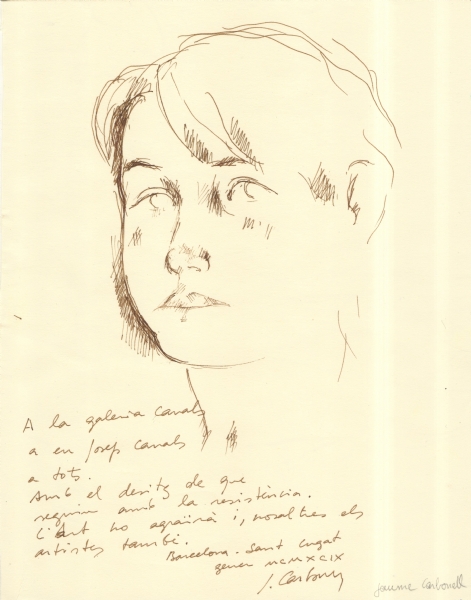 A la galeria Canals
a en Josep Canals
a tots.
Amb el desitg de que
seguim amb la resistència.
L'Art ho agrairà i, nosaltres els
artistes també.
Barcelona. Sant Cugat
gener MCMXCIX
J. Carbonell
Jaume Carbonell